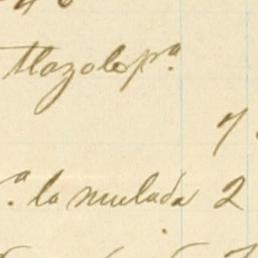 tlazole pª
7
ª la mulada 2